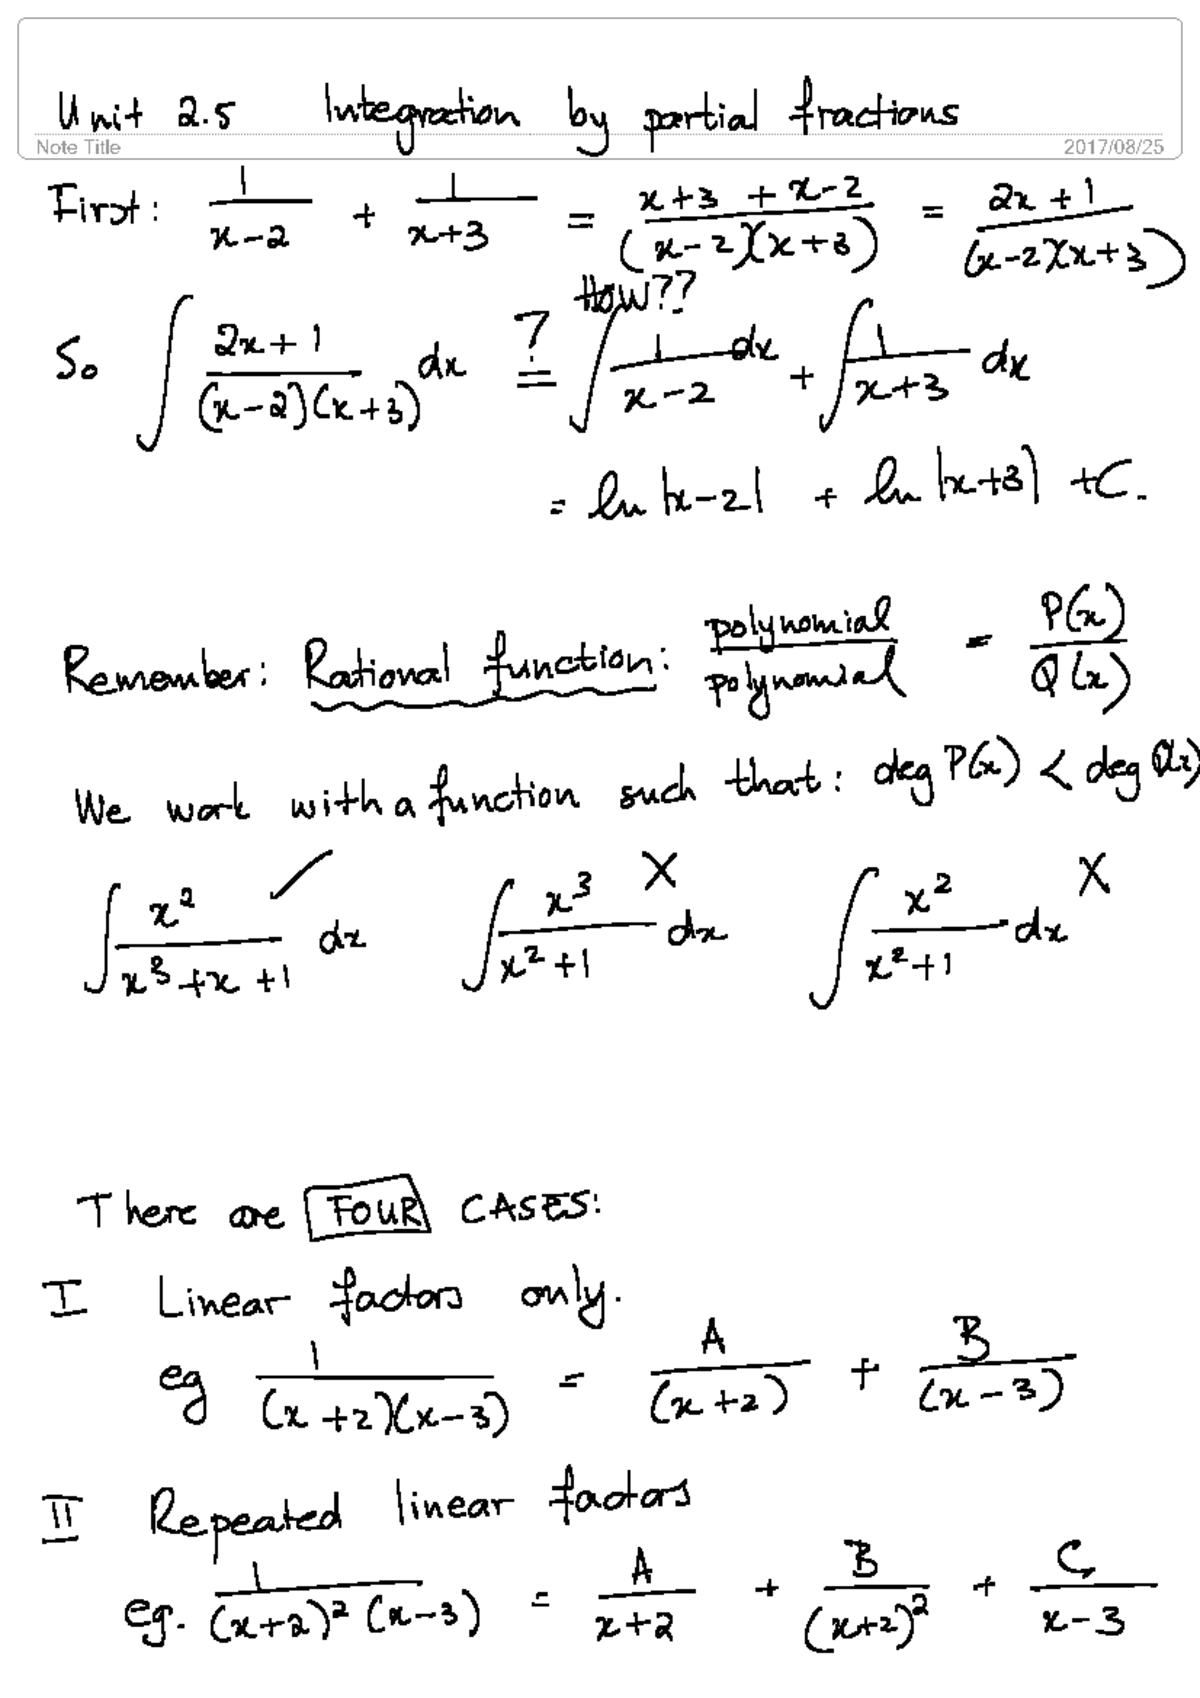 Unit 2.5 Integration by partial fractions
Note Title 2017/08/25
First: 1/(x-2) + 1/(x+3) = (x+3 + x-2)/((x-2)(x+3)) = (2x+1)/((x-2)(x+3))
How??
So ∫ (2x+1)/((x-2)(x+3)) dx ?= ∫ 1/(x-2) dx + ∫ 1/(x+3) dx
= ln|x-2| + ln|x+3| + C.
Remember: Rational function: polynomial/polynomial = P(x)/Q(x)
We work with a function such that: deg P(x) < deg Q(x)
∫ x²/(x³+x+1) dx ✓ ∫ x³/(x²+1) dx X ∫ x²/(x²+1) dx X
There are FOUR CASES:
I Linear factors only.
eg 1/((x+2)(x-3)) = A/(x+2) + B/(x-3)
II Repeated linear factors
eg. 1/((x+2)²(x-3)) = A/(x+2) + B/(x+2)² + C/(x-3)